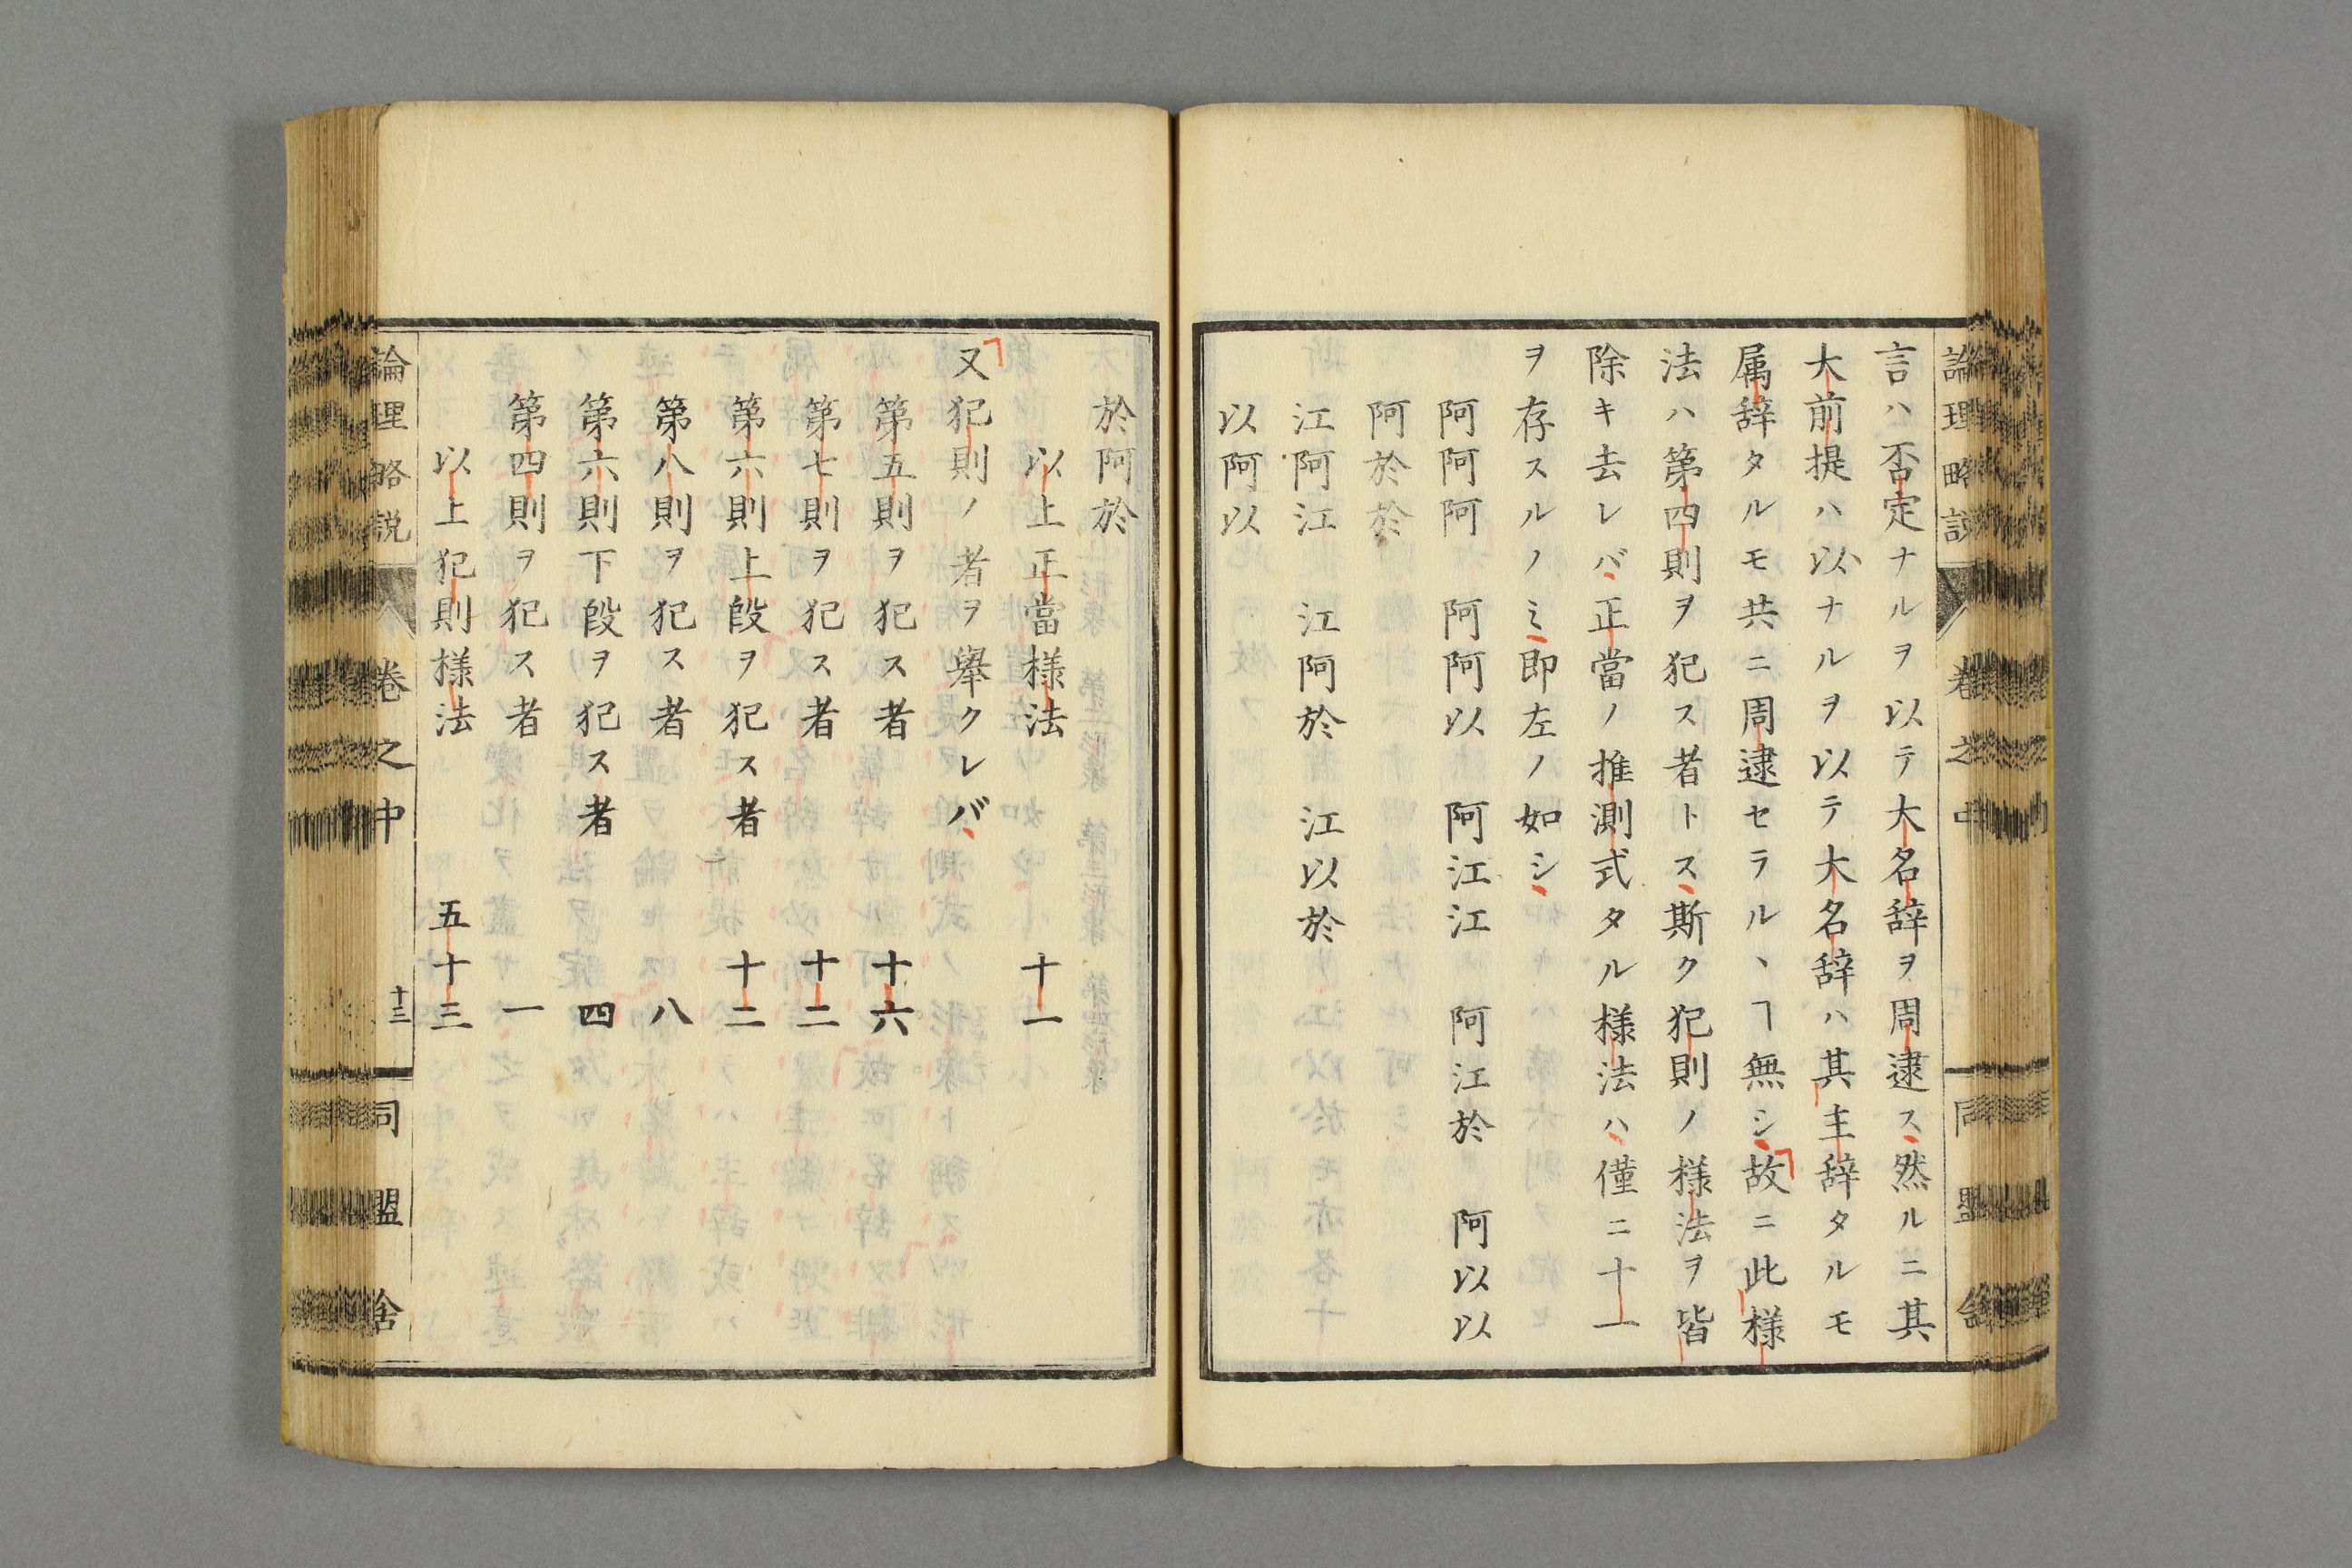 論理略説 卷之中 同盟舍
言ハ否定ナルヲ以テ大名辞ヲ周逮ス然ルニ其
大前提ハ以ナルヲ以テ大名辞ハ其主辞タルモ
属辞タルモ共ニ周逮セラルヽヿ無シ故ニ此様
法ハ第四則ヲ犯ス者トス斯ク犯則ノ様法ヲ皆
除キ去レバ正當ノ推測式タル様法ハ僅ニ十一
ヲ存スルノミ即左ノ如シ
阿阿阿 阿阿以 阿江江 阿江於 阿以以
阿於於
江阿江 江阿於 江以於
以阿以
於阿於
以上正當様法 十一
又犯則ノ者ヲ舉クレバ
第五則ヲ犯ス者 十六
第七則ヲ犯ス者 十二
第六則上段ヲ犯ス者 十二
第八則ヲ犯ス者 八
第六則下段ヲ犯ス者 四
第四則ヲ犯ス者 一
以上犯則様法 五十三
論理略説 卷之中 十三 同盟舍